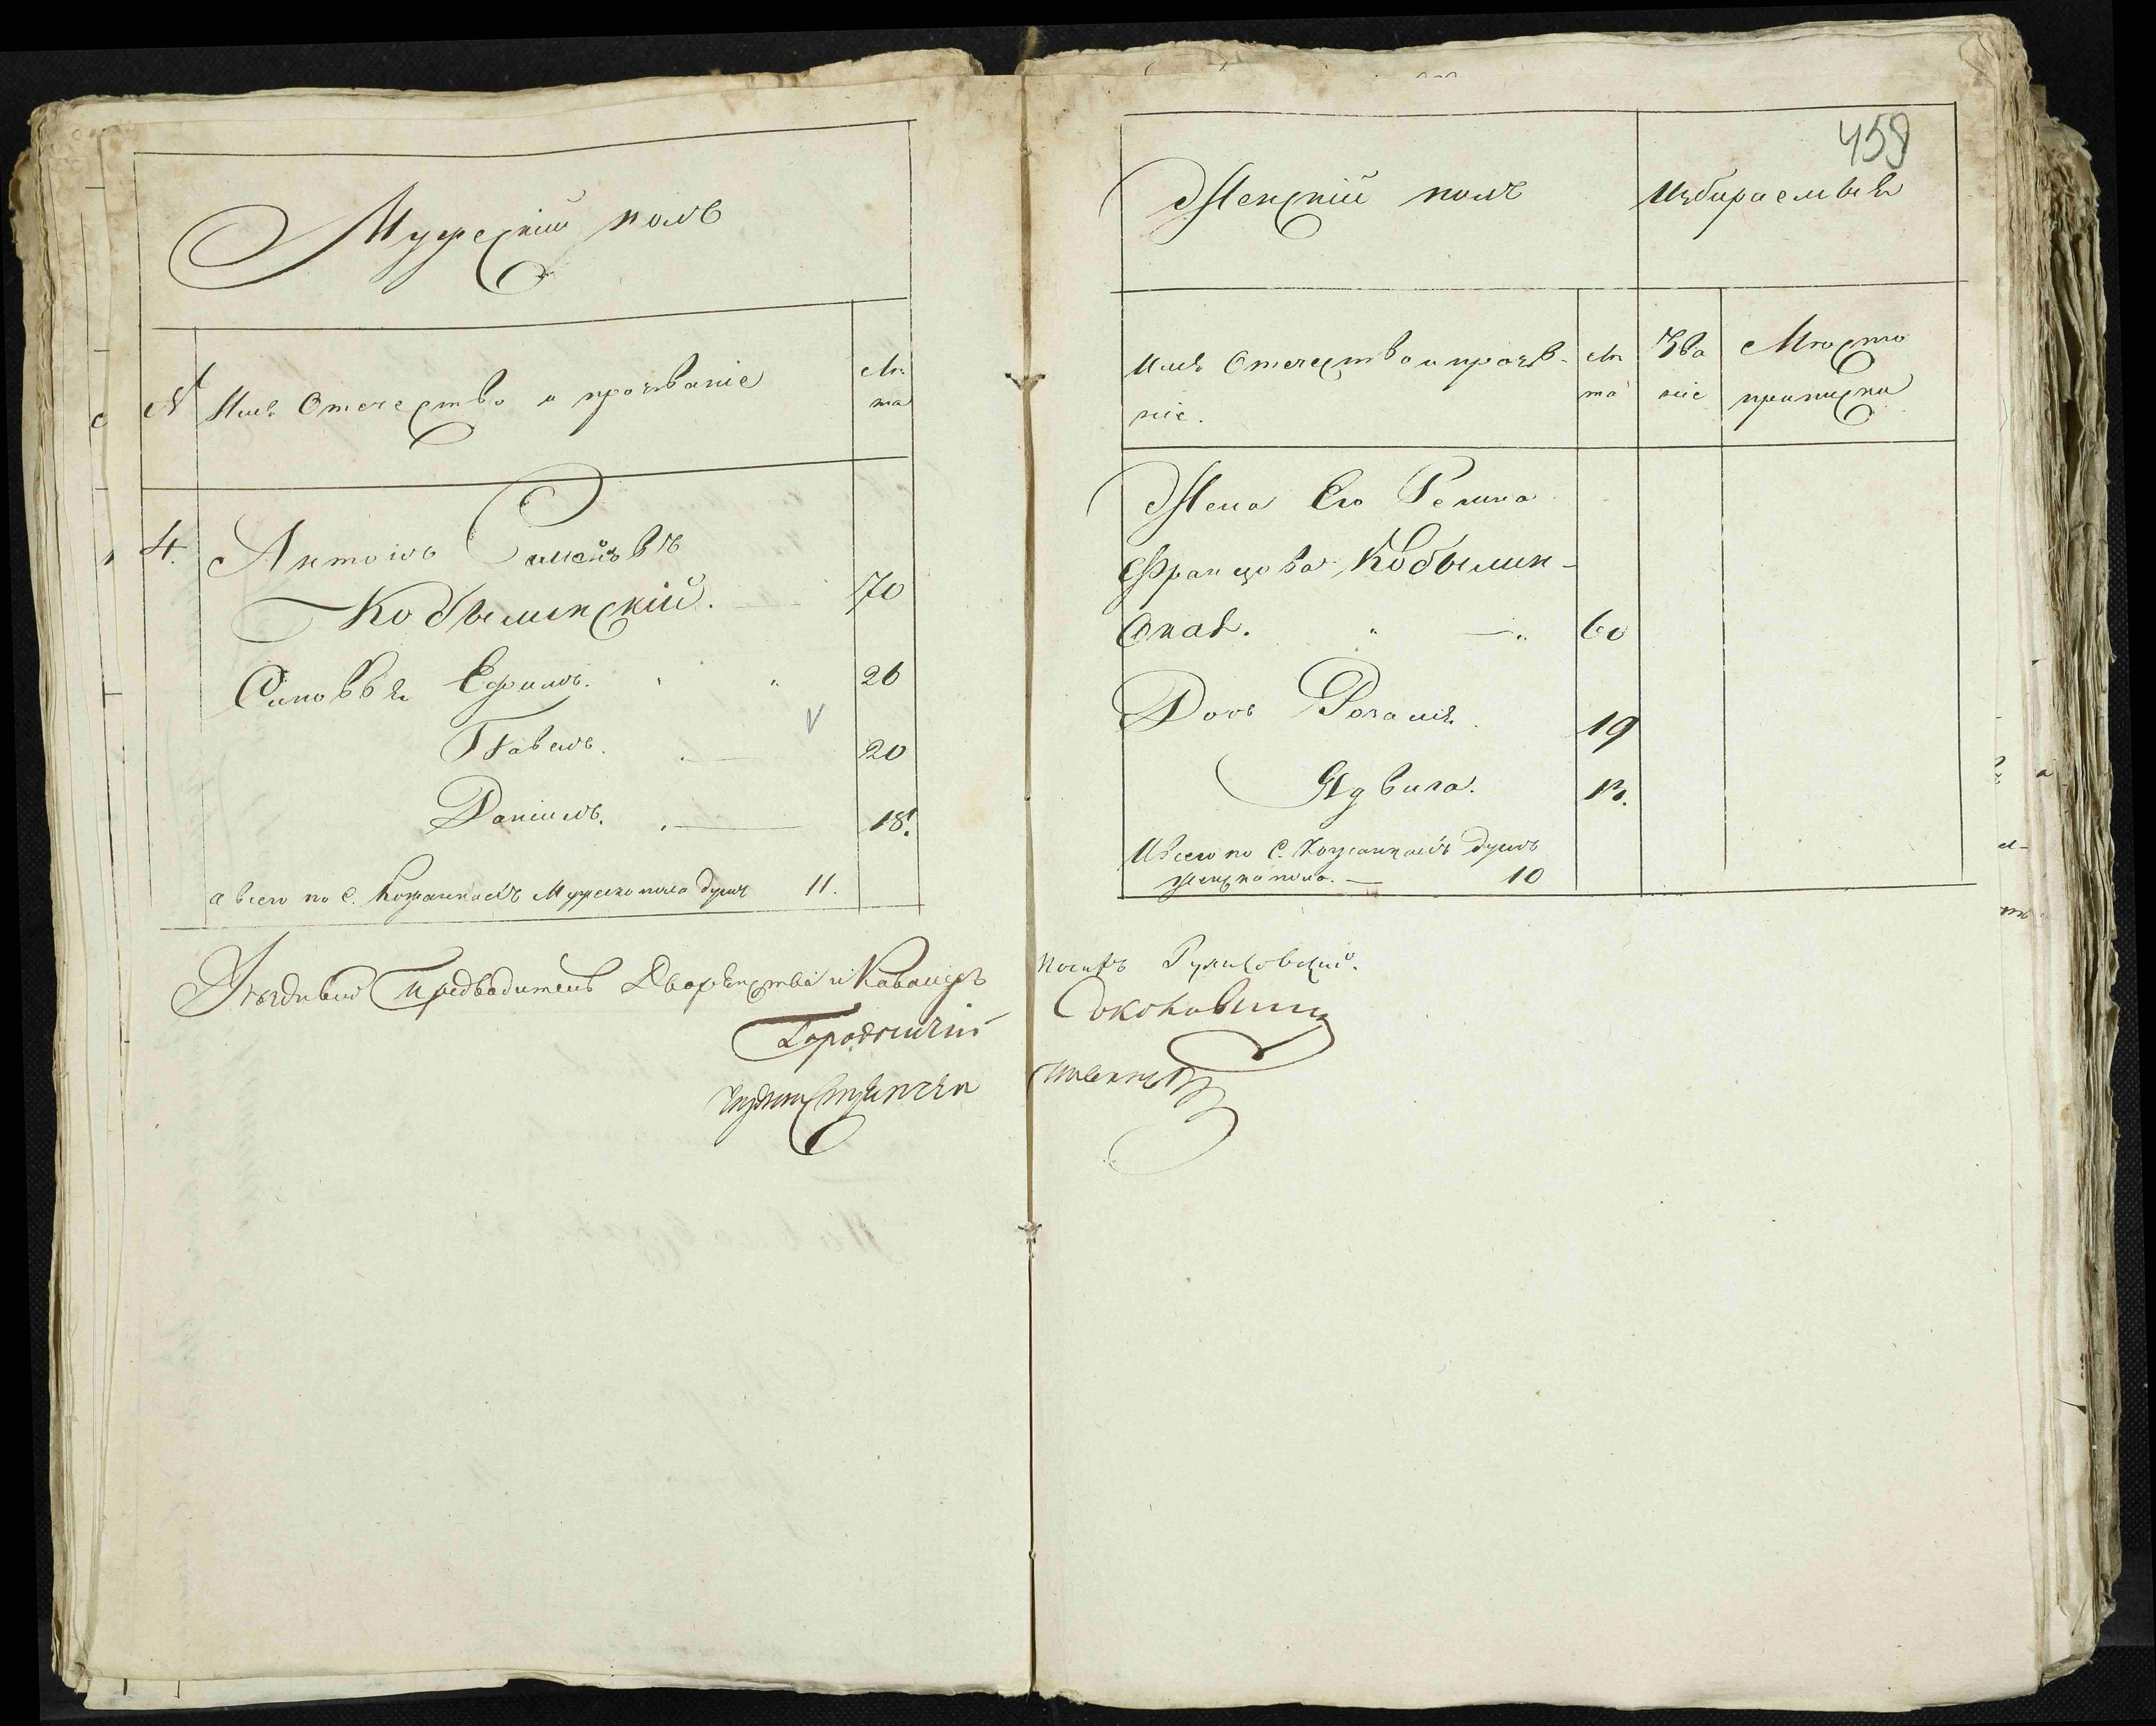 Мужескiй полъ
№ Имя Отечество и прозванiе
Лѣ
та
4. Антонъ Симеоновъ
Кобылинскiй. 70
Синовья Ефимъ. 26
Павелъ. 20
Данiилъ. 18.
а всего по С. Кожанкамъ Мужеска пола душъ 11.
459
Женскiй полъ
Избираемыя
Имя Отечество и прозв-
нiе.
Лѣ
та
Зва
нiе
Мѣсто
приписки
Жена Его
Францова Кобылин-
ская. 60
Дочь Розалiя 19
Ядвига. 13.
И всего по С. Кожанкамъ душъ
женска пола. 10
Уѣздный Предводитель Дворянства и Кавалеръ Iосифъ Руликовскiй.
Городничiй